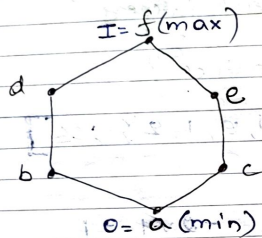 I = f(max)
d
e
b
c
0 = a (min)